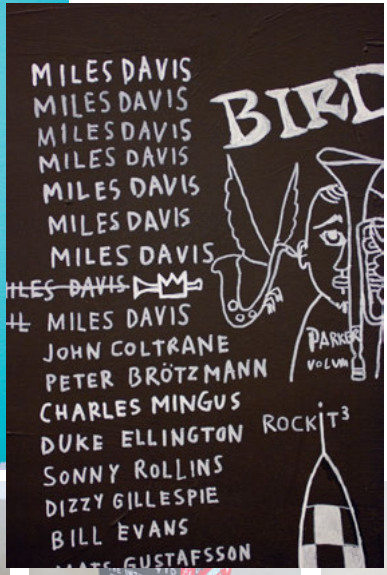 MILES DAVIS
MILES DAVIS
MILES DAVIS
MILES DAVIS
MILES DAVIS
MILES DAVIS
MILES DAVIS
ILES DAVIS
MILES DAVIS
JOHN COLTRANE
PETER BRÖTZMANN
CHARLES MINGUS
DUKE ELLINGTON
SONNY ROLLINS
DIZZY GILLESPIE
BILL EVANS
MATS GUSTAFSSON
BIRD
PARKER
VOLUM
ROCKIT³